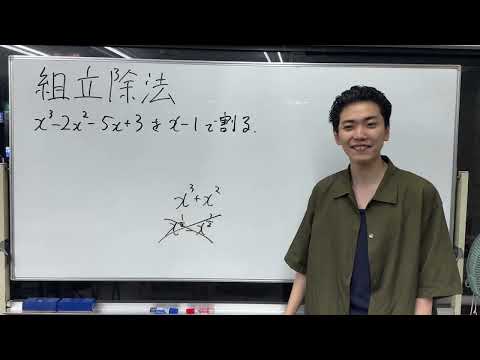 組立除法
x³-2x²-5x+3をx-1で割る.
x³+x²